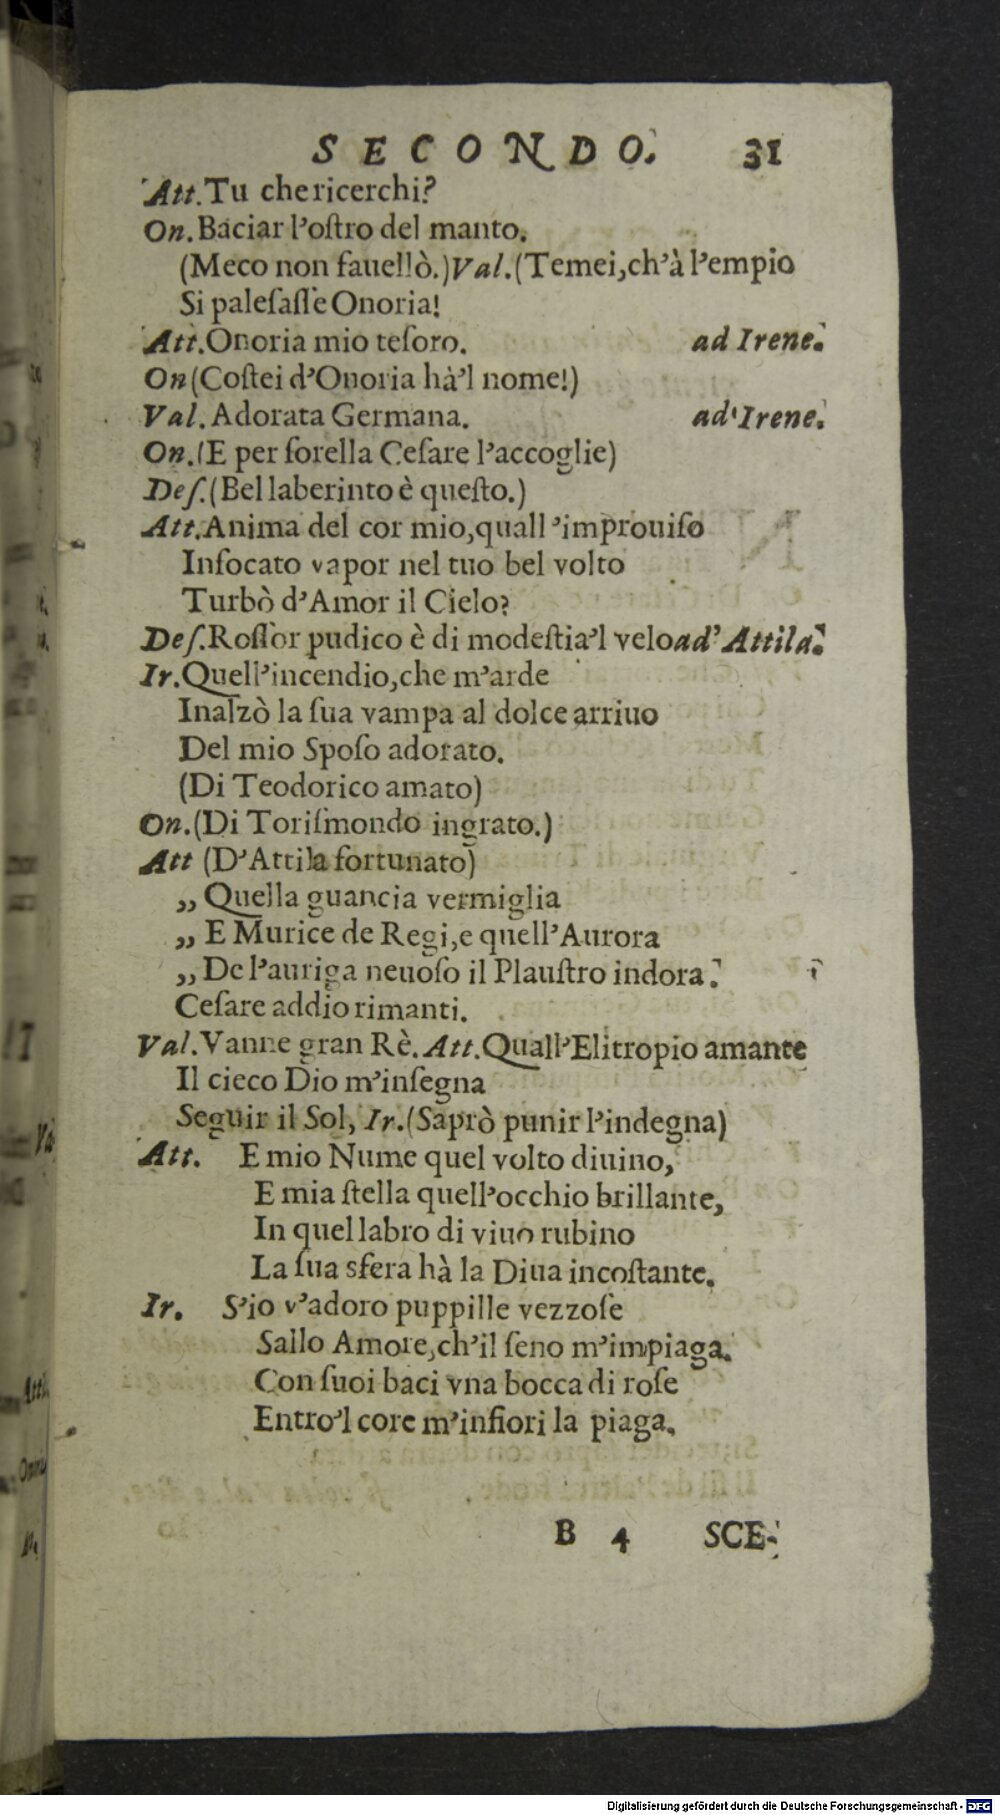 SECONDO. 31
Att. Tu che ricerchi?
On. Baciar l'oſtro del manto.
(Meco non fauellò.) Val. (Temei, ch'à l'empio
Si paleſaſſe Onoria!
Att. Onoria mio teſoro. ad Irene.
On (Coſtei d'Onoria hà'l nome!)
Val. Adorata Germana. ad Irene.
On. (E per ſorella Ceſare l'accoglie)
Deſ. (Bel laberinto è queſto.)
Att. Anima del cor mio, quall'improuiſo
Infocato vapor nel tuo bel volto
Turbò d'Amor il Cielo?
Deſ. Roſſor pudico è di modeſtia'l velo ad' Attila.
Ir. Quell'incendio, che m'arde
Inalzò la ſua vampa al dolce arriuo
Del mio Spoſo adorato.
(Di Teodorico amato)
On. (Di Toriſmondo ingrato.)
Att (D'Attila fortunato)
„ Quella guancia vermiglia
„ E Murice de Regi, e quell'Aurora
„ De l'auriga neuoſo il Plauſtro indora.
Ceſare addio rimanti.
Val. Vanne gran Rè. Att. Quall'Elitropio amante
Il cieco Dio m'inſegna
Seguir il Sol, Ir. (Saprò punir l'indegna)
Att. E mio Nume quel volto diuino,
E mia ſtella quell'occhio brillante,
In quel labro di viuo rubino
La ſua sfera hà la Diua incoſtante.
Ir. S'io v'adoro puppille vezzoſe
Sallo Amore, ch'il ſeno m'impiaga.
Con ſuoi baci vna bocca di roſe
Entro'l core m'infiori la piaga.
B 4 SCE-
Digitalisierung gefördert durch die Deutsche Forschungsgemeinschaft - DFG